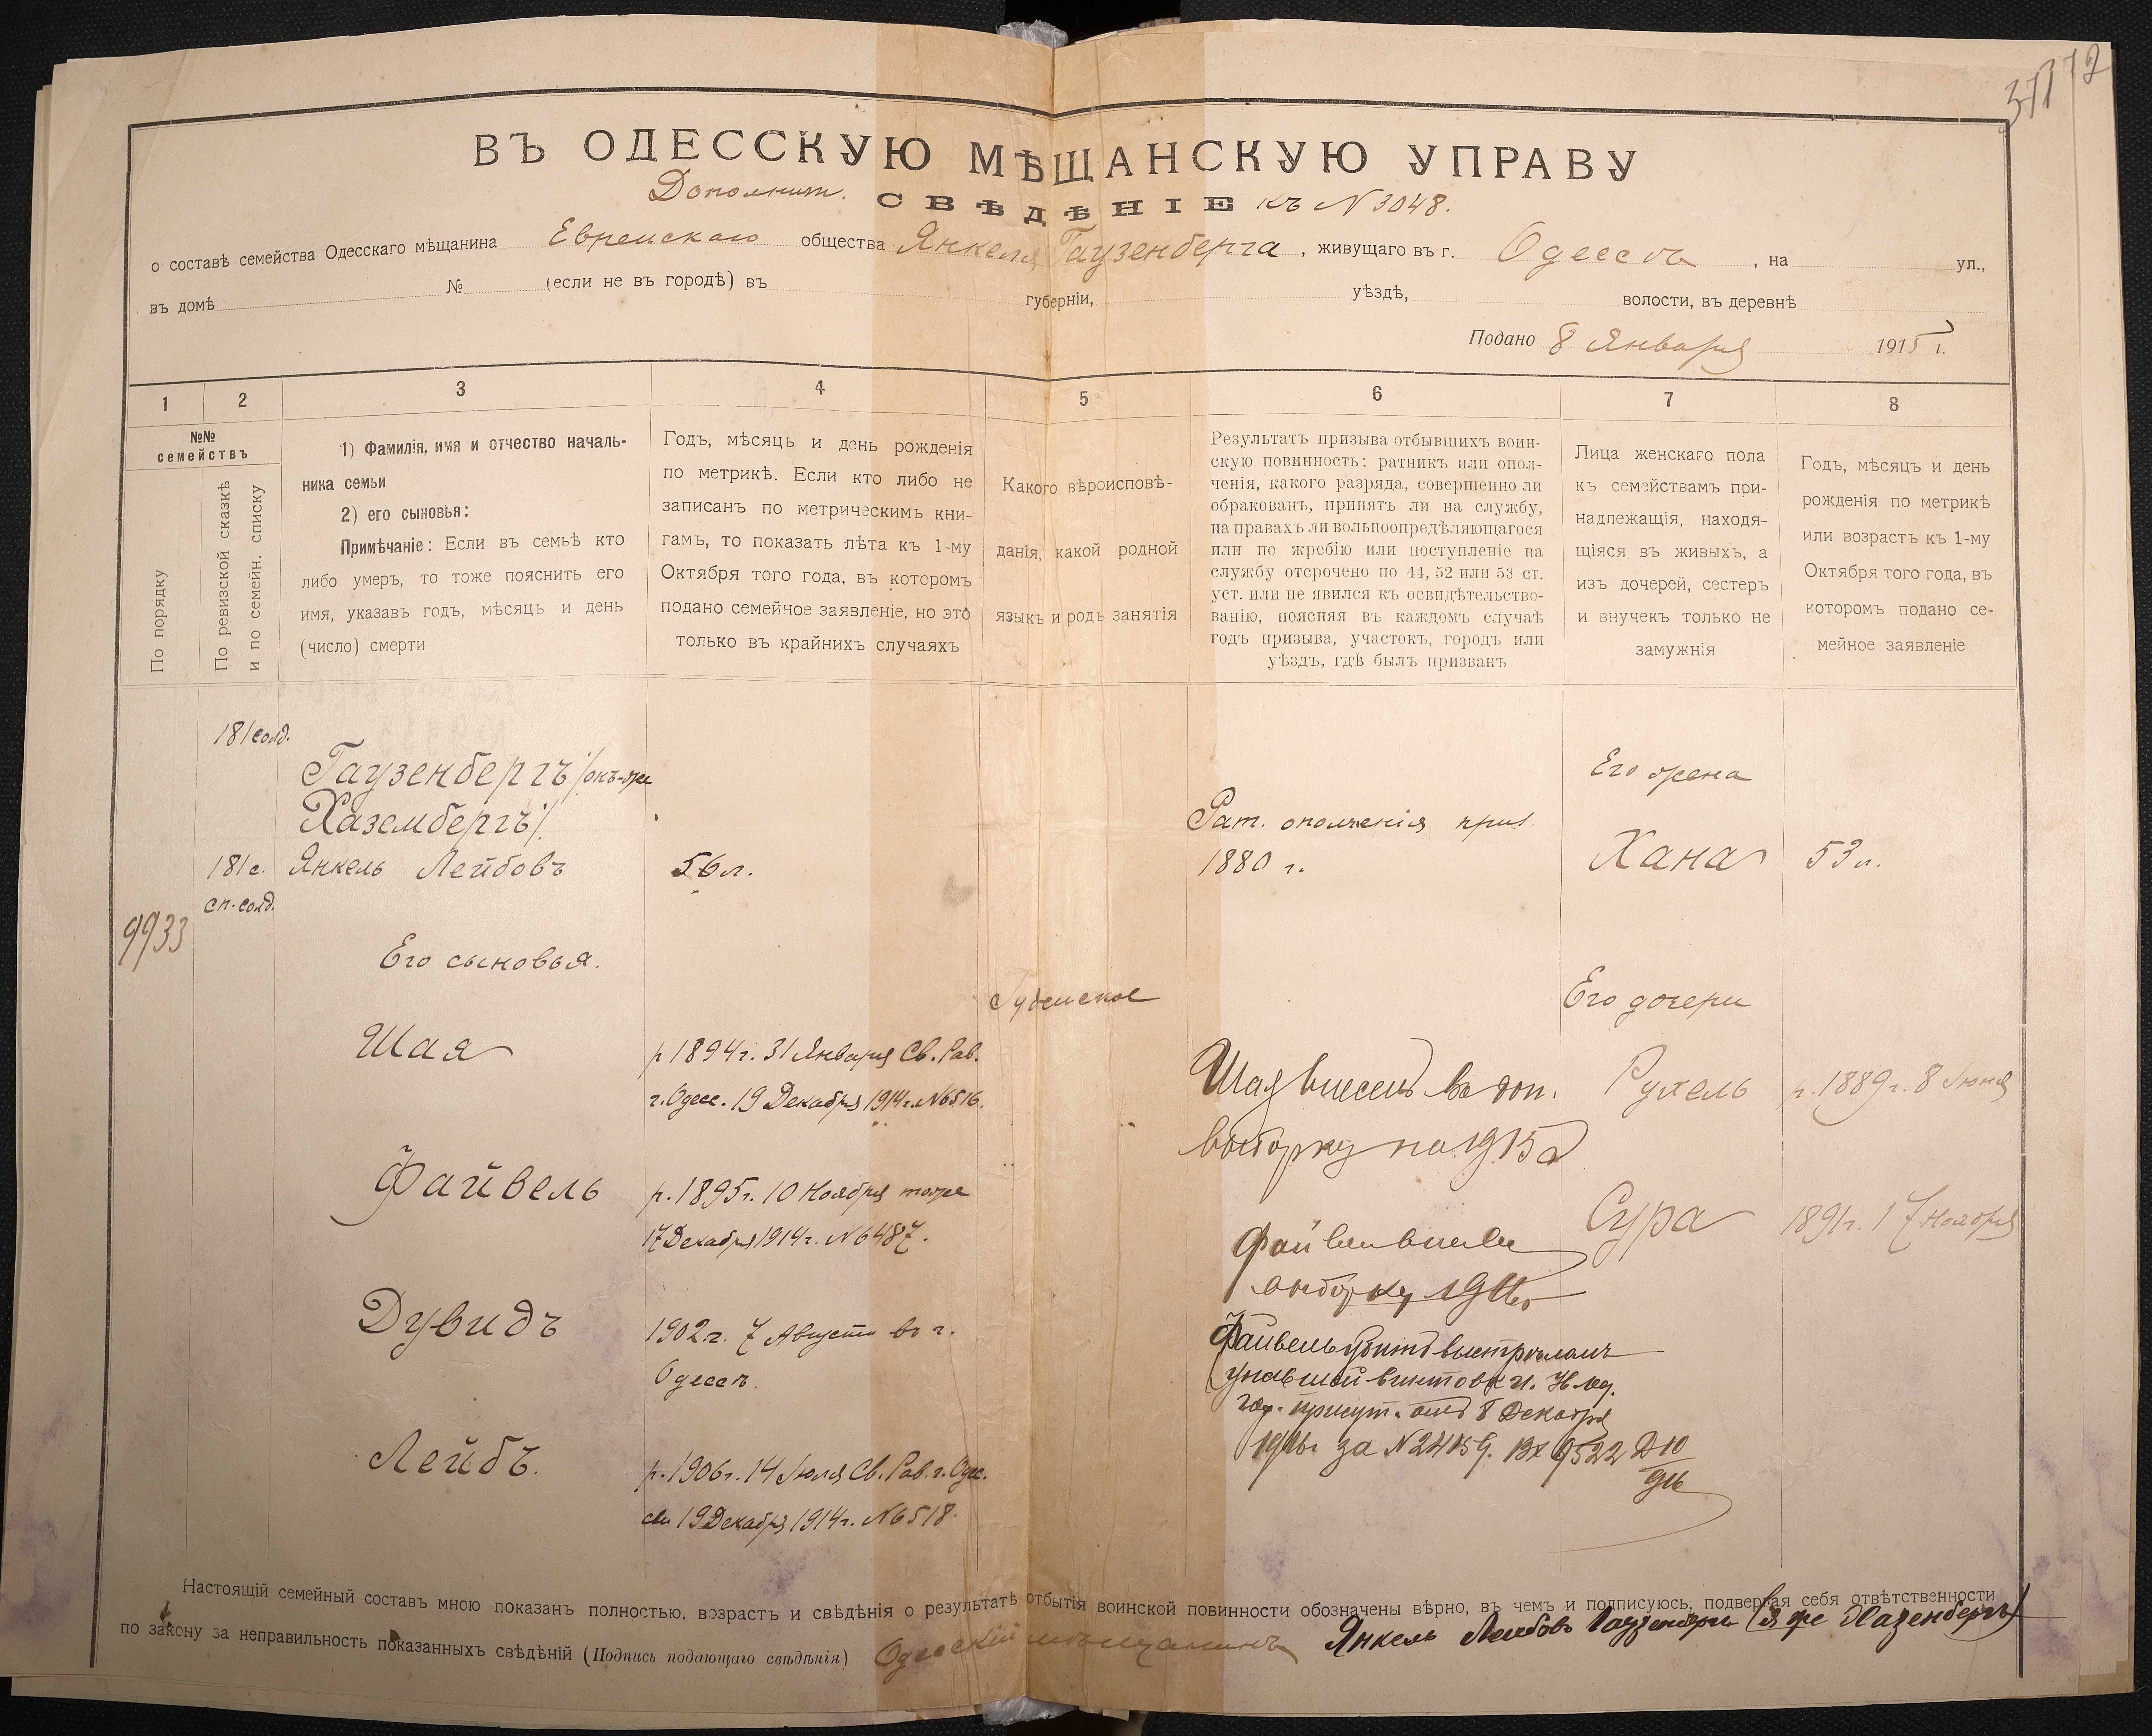 37372
ВЪ ОДЕССКУЮ МѢЩАНСКУЮ УПРАВУ
Дополнит. СВѢДѢНІЕ къ N 3048.
о составѣ семейства Одесскаго мѣщанина Еврейскаго общества Янкеля Гаузенберга, живущаго въ г. Одессѣ, на ул.,
въ домѣ № (если не въ городѣ) въ губерніи, уѣздѣ, волости, въ деревнѣ
Подано 8 Января 1915 г.
1 2 3 4 5 6 7 8
№№
семействъ
По порядку
По ревизской сказкѣ
и по семейн. списку
1) Фамилія, имя и отчество началь-
ника семьи
2) его сыновья:
Примѣчаніе: Если въ семьѣ кто
либо умеръ, то тоже пояснить его
имя, указавъ годъ, мѣсяцъ и день
(число) смерти
Годъ, мѣсяцъ и день рожденія
по метрикѣ. Если кто либо не
записанъ по метрическимъ кни-
гамъ, то показать лѣта къ 1-му
Октября того года, въ которомъ
подано семейное заявленіе, но это
только въ крайнихъ случаяхъ
Какого вѣроисповѣ-
данія, какой родной
языкъ и родъ занятія
Результатъ призыва отбывшихъ воин-
скую повинность: ратникъ или опол-
ченія, какого разряда, совершенно ли
обракованъ, принятъ ли на службу,
на правахъ ли вольноопредѣляющагося
или по жребію или поступленіе на
службу отсрочено по 44, 52 или 53 ст.
уст. или не явился къ освидѣтельство-
ванію, поясняя въ каждомъ случаѣ
годъ призыва, участокъ, городъ или
уѣздъ, гдѣ былъ призванъ
Лица женскаго пола
къ семействамъ при-
надлежащія, находя-
щіяся въ живыхъ, а
изъ дочерей, сестеръ
и внучекъ только не
замужнія
Годъ, мѣсяцъ и день
рожденія по метрикѣ
или возрастъ къ 1-му
Октября того года, въ
которомъ подано се-
мейное заявленіе
181 солд.
Гаузенбергъ /онъ-же
Хазембергъ/.
181 с. Янкель Лейбовъ
сп. солд.
56 л.
Рат. ополченія приз.
1880 г.
Его жена
Хана 53 л.
9933
Его сыновья.
Іудейское
Его дочери
Шая
р. 1894 г. 31 Января Св. Рав.
г. Одес. 19 Декабря 1914 г. N 6516.
Шая внесенъ въ доп.
выборку на 1915 г
Рухель р. 1889 г. 8 Іюня
Файвель
р. 1895 г. 10 Ноября тоже
17 Декабря 1914 г. N 6487.
Файвель
выборку 1916
Сура 1891 г. 17 Ноября
Дувидъ
1902 г. 7 Августа въ г.
Одессѣ.
Файвель убитъ выстрѣломъ
упавшей винтовки.
гор. присут. отъ 8 Декабря
1916 г за N 24159. Вх 9522
Лейбъ.
р. 1906 г. 14 Іюля Св. Рав. г. Одес.
19 Декабря 1914 г. N 6518.
Настоящій семейный составъ мною показанъ полностью, возрастъ и свѣдѣнія о результатѣ отбытія воинской повинности обозначены вѣрно, въ чемъ и подписуюсь, подвергая себя отвѣтственности
по закону за неправильность показанныхъ свѣдѣній (Подпись подающаго свѣдѣнія) Одесскій мѣщанинъ Янкель Лейбовъ Гаузенбергъ (он же Хазенбергъ)